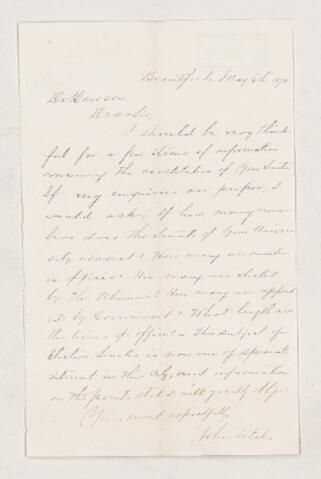 Brantford, May 6th, 1870
Dr Dawson
Dear Sir,
I should be very thank-
ful for a few items of information
concerning the constitution of your
If my enquiries are proper, I
would ask, of how many mem
bers does the Senate of your Univer
sity consist? How many are
ex officio? How many are elected
by the Alumni? How many are appoint
ed by Government? What length are
the terms of office? This subject of
Elective Senates is now one of special
interest in this and information
on this point, will greatly oblige
Yours most respectfully
John